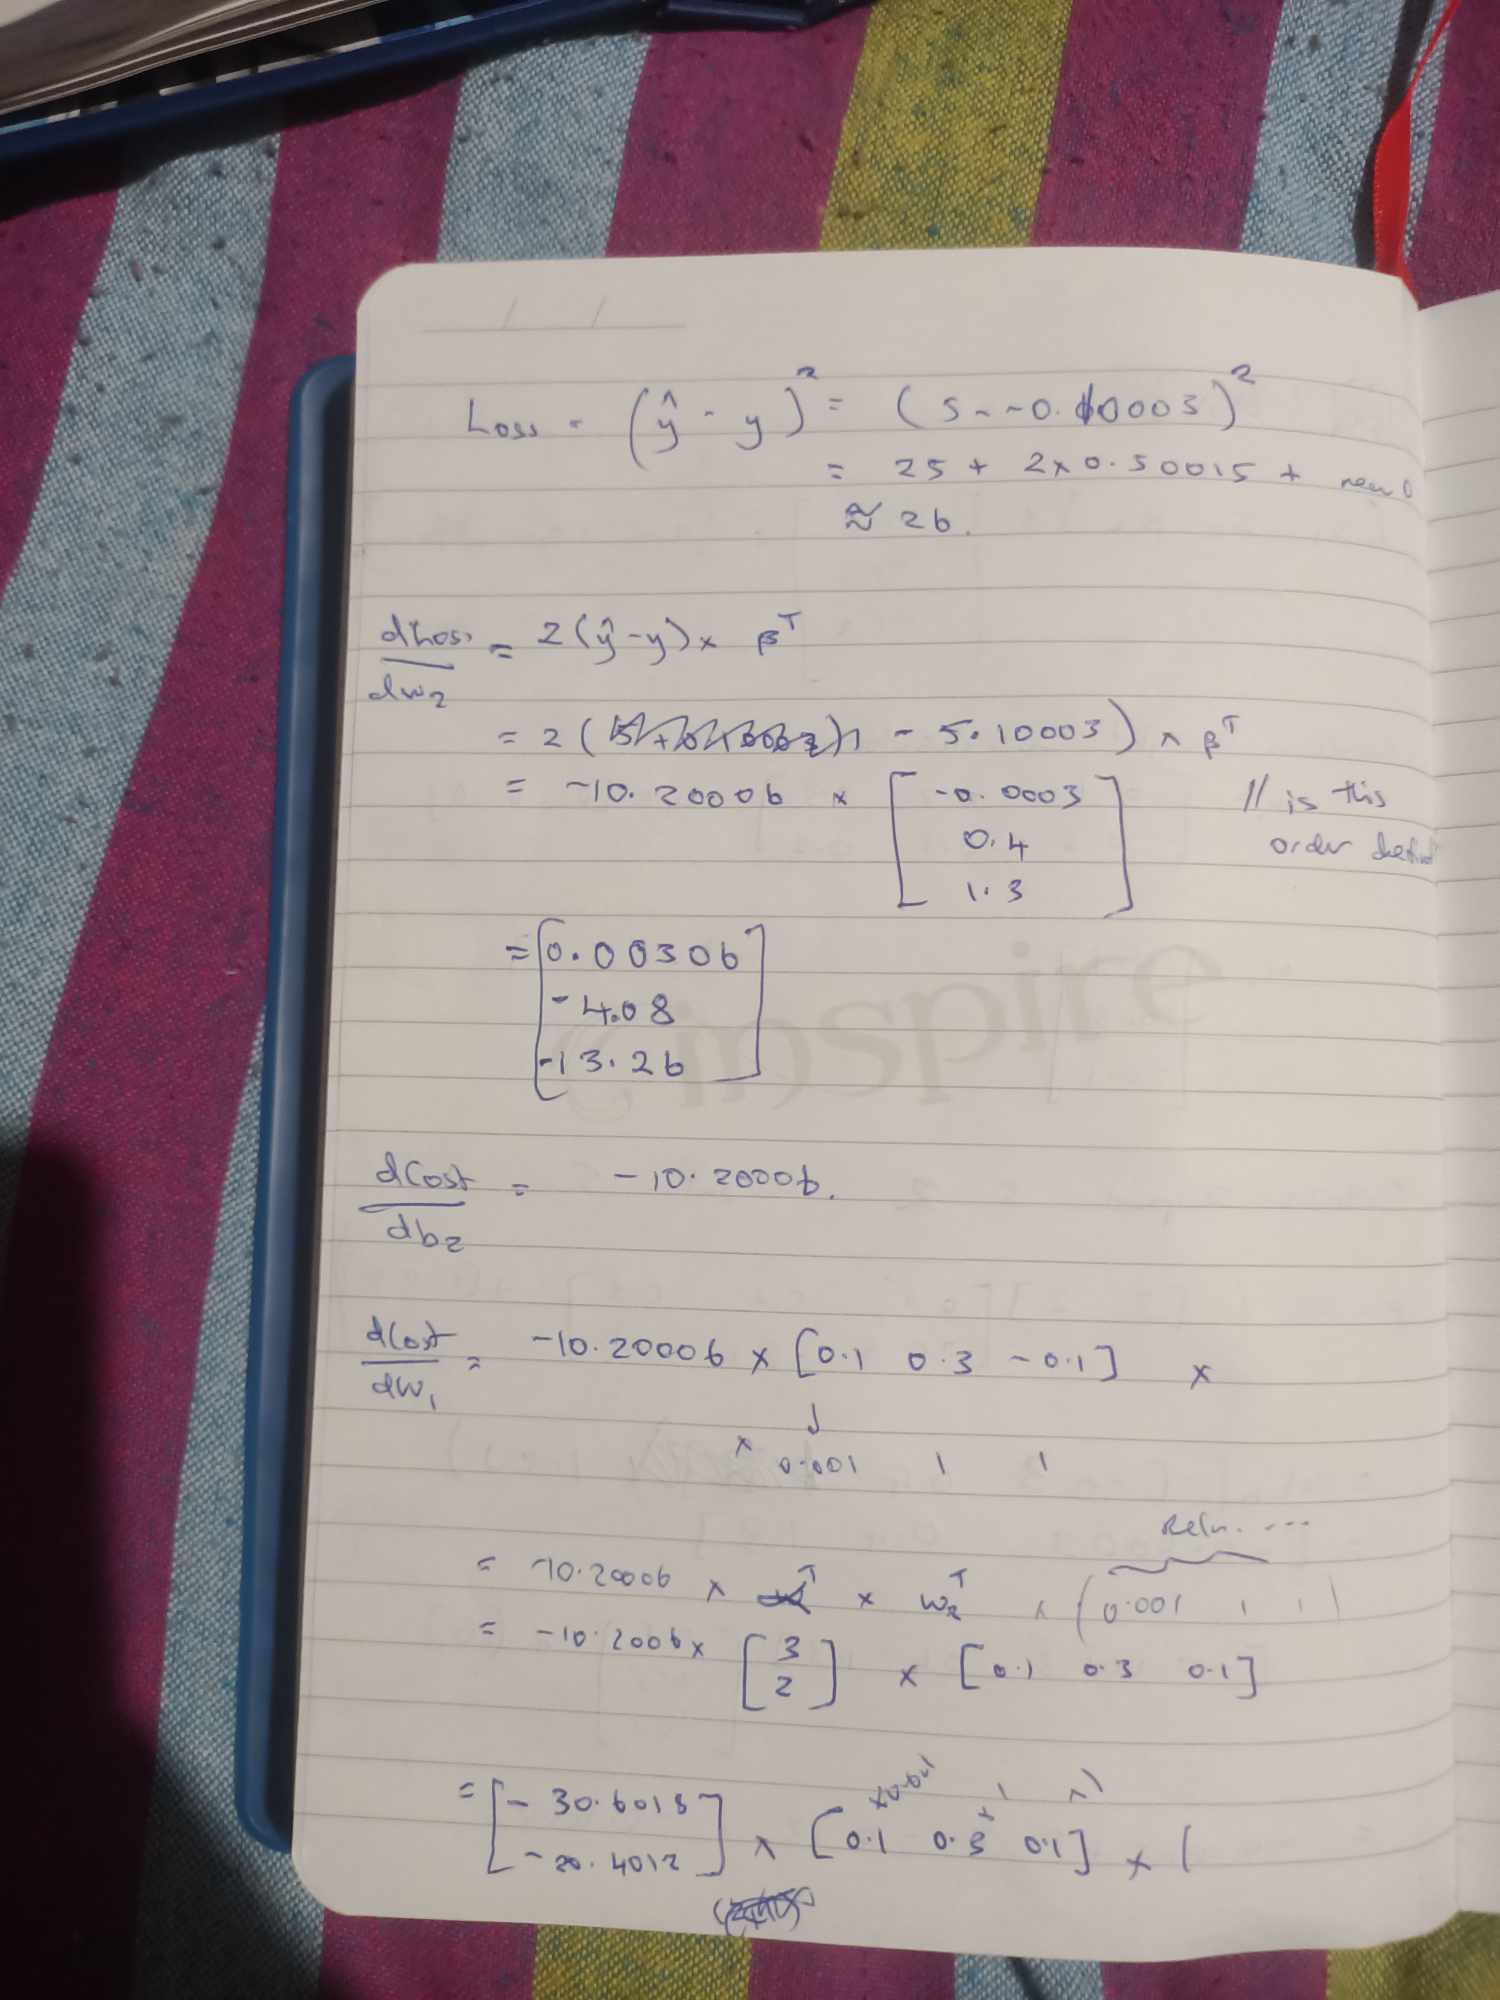 Loss = (ŷ - y)² = (5 - -0.10003)²
= 25 + 2 x 0.50015 + near 0
≈ 26.
dLoss/dw₂ = 2(ŷ - y) x βᵀ
= 2( - 5.10003) x βᵀ
= -10.20006 x [-0.0003 0.4 1.3] // is this order
= [0.00306 -4.08 -13.26]
inspire
dCost/db₂ = -10.20006.
dCost/dW₁ = -10.20006 x [0.1 0.3 -0.1] x
↓
x 0.001 1 1
Relu. ...
= -10.20006 x x w₂ᵀ x (0.001 1 1)
= -10.2006 x [3 2] x [0.1 0.3 0.1]
x0.001 x1 x1
= [-30.6018 -20.4012] x [0.1 0.3 0.1] x (